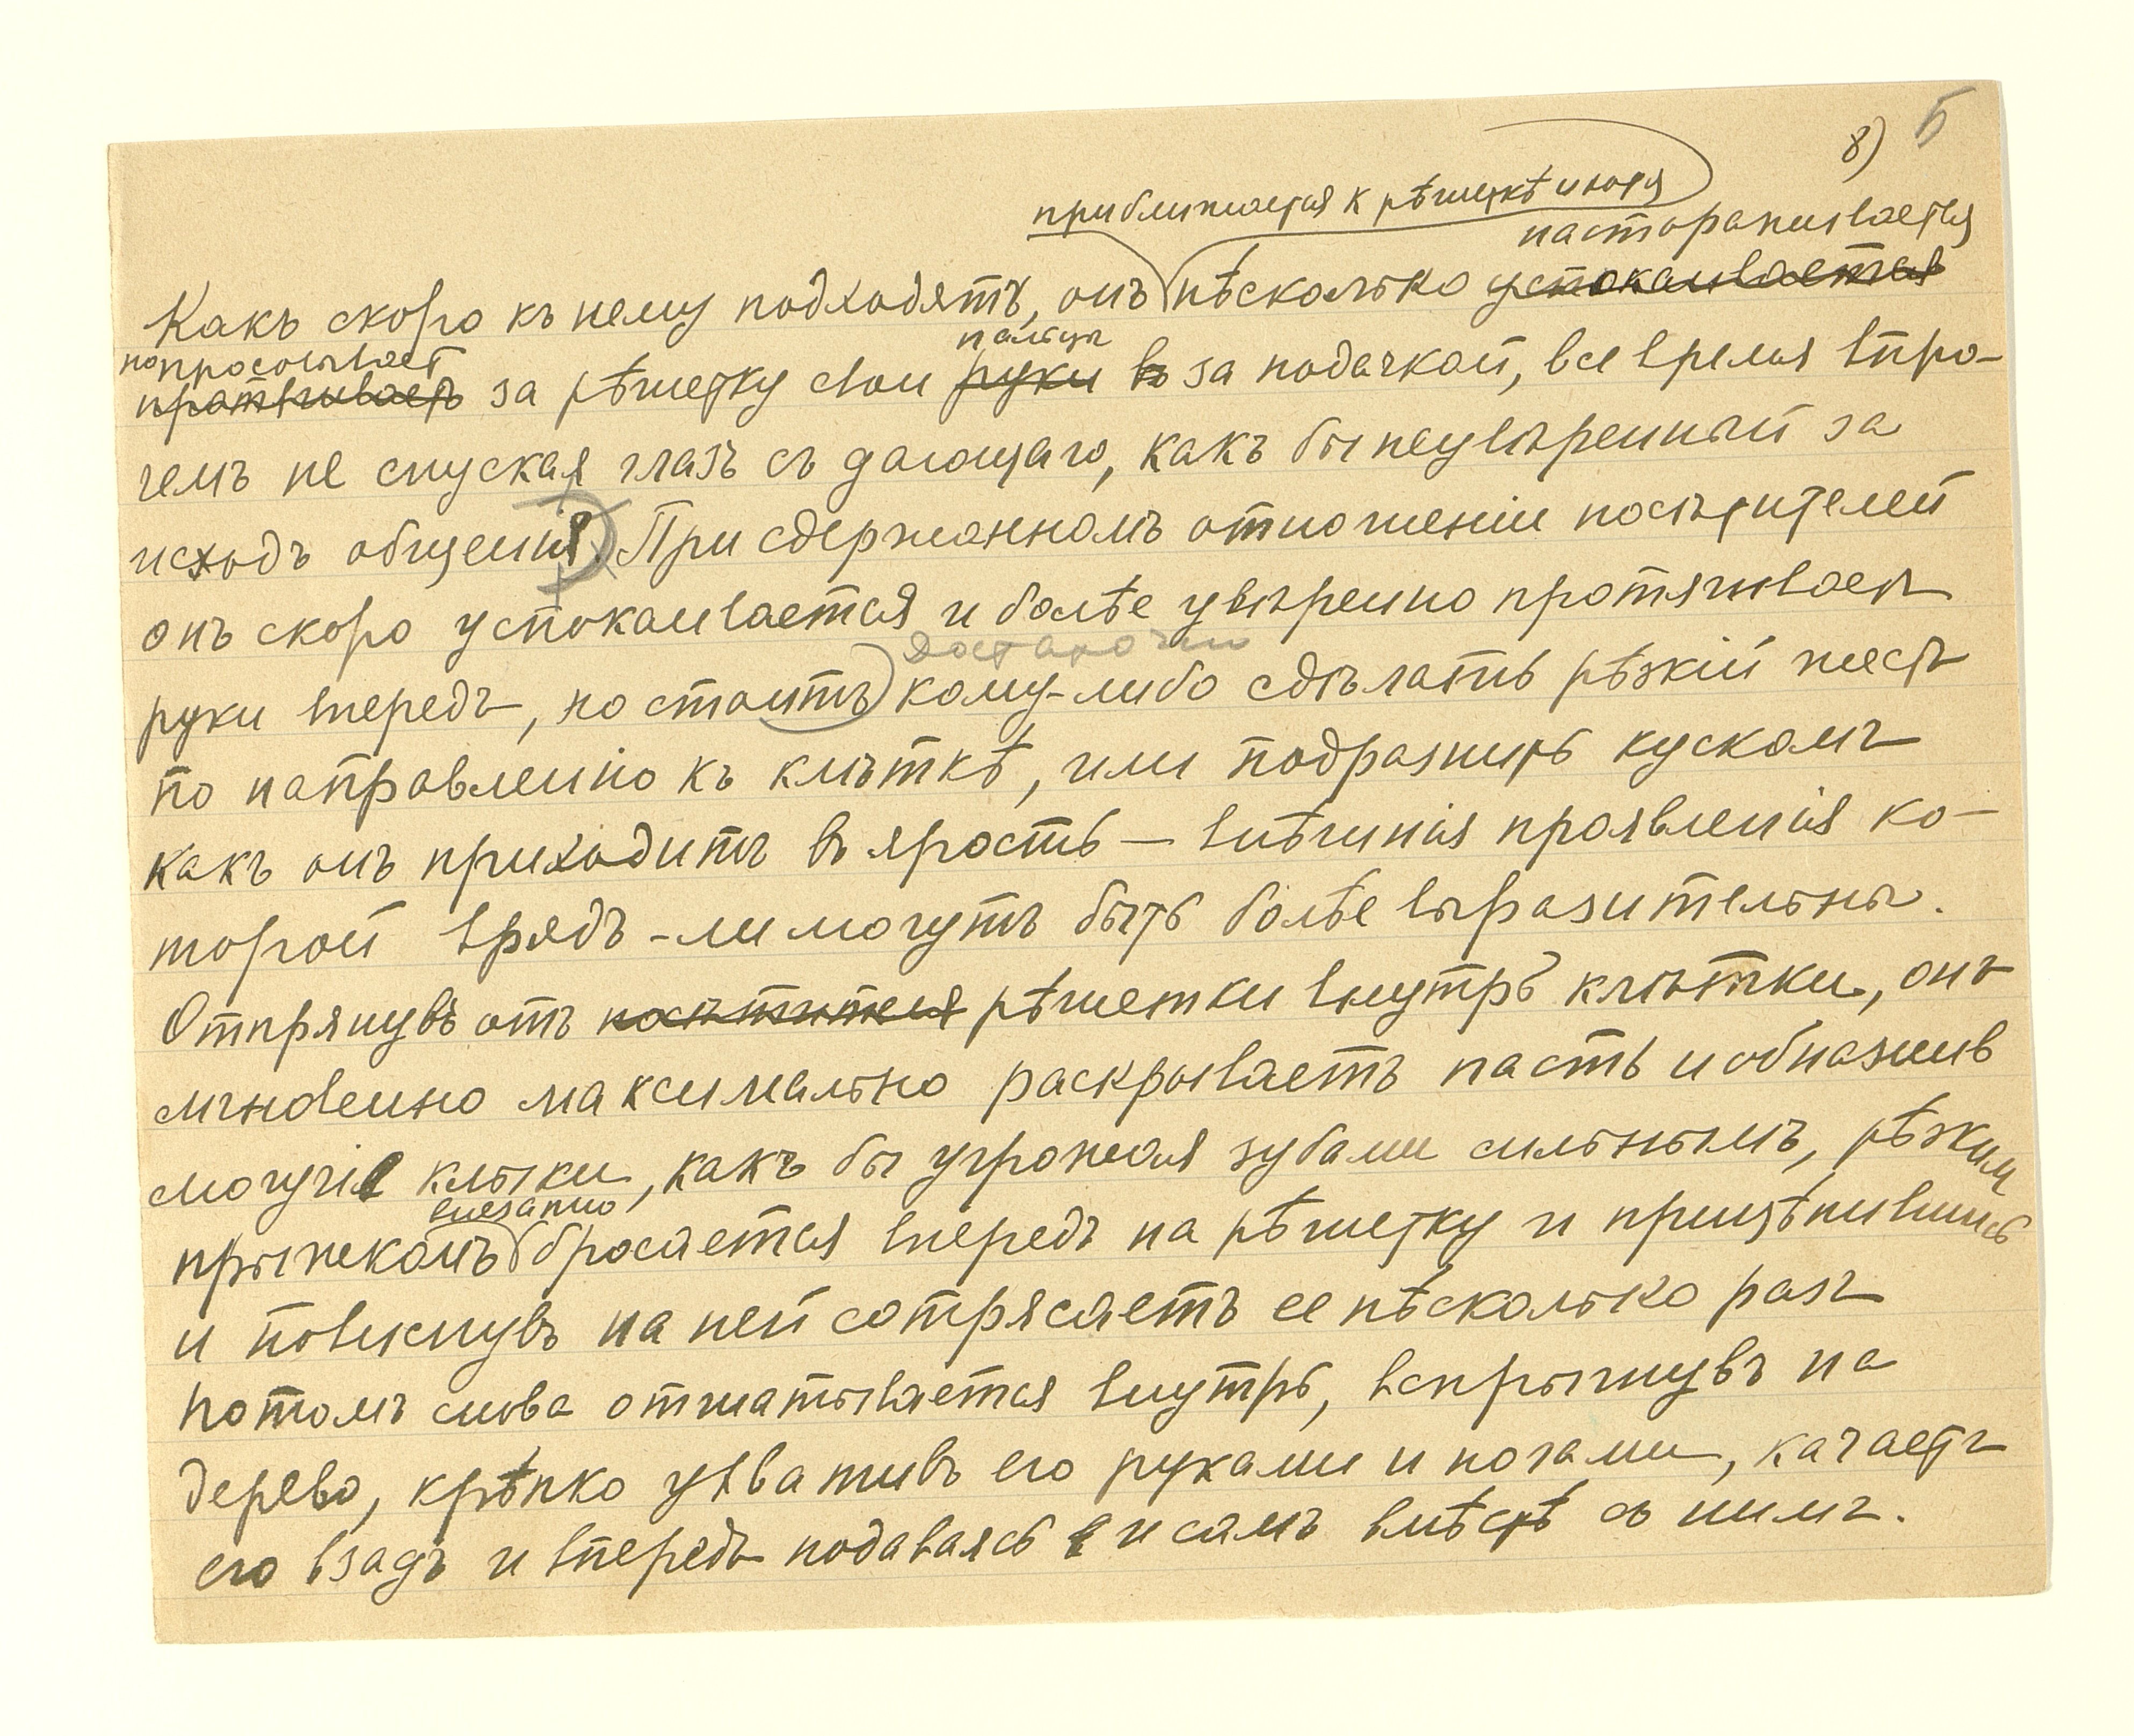 8) 5
приближается к рѣшеткѣ и хотя
настораживается
Какъ скоро къ нему подходятъ, онъ нѣсколько успокаивается
но просовывает пальцы
протягиваетъ за рѣшетку свои руки въ за подачкой, все время впро-
чемъ не спуская глазъ съ дающаго, какъ бы неувѣренный за
исходъ общенія. При сдержанномъ отношеніи посѣтителей
онъ скоро успокаивается и болѣе увѣренно протягиваетъ
достаточно
руки впередъ, но стоитъ кому-либо сдѣлать рѣзкій жестъ
по направленію къ клѣткѣ, или подразнить кускомъ
какъ онъ приходитъ въ ярость — внѣшнія проявленія ко-
торой врядъ-ли могутъ быть болѣе выразительны.
Отпрянувъ отъ посѣтителя рѣшетки внутрь клѣтки, онъ
мгновенно максимально раскрываетъ пасть и обнажив
могучіе клыки, какъ бы угрожая зубами сильнымъ, рѣзким
внезапно
прыжкомъ бросается впередъ на рѣшетку и прицѣпившись
и повиснувъ на ней сотрясаетъ ее нѣсколько разъ
потомъ снова отшатывается внутрь, вспрыгнувъ на
дерево, крѣпко ухвативъ его руками и ногами, качаетъ
его взадъ и впередъ подаваясь и самъ вмѣстѣ съ нимъ.